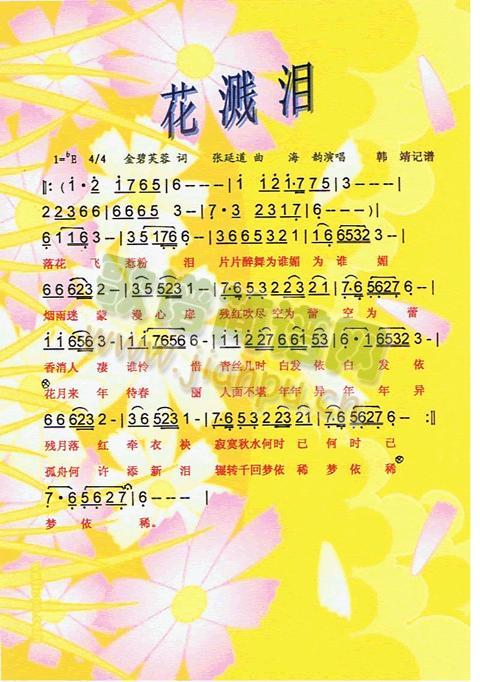 花溅泪
1=ᵇE 4/4 金碧芙蓉 词 张延道 曲 海 韵演唱 韩 靖记谱
‖: (i·2 i 7 6 5 | 6 - - - | i i 2 i·7 7 5 |
2 2 3 6 6 | 6 6 6 5 3 - | 7·3 2 3 1 7 | 6 - - -) |
6 1 1 6 3 - | 3 5 1 7 6 6 - | 6 6 5 3 2 3 5 | i i 6 5 3 2 3 - |
落花 飞 惹粉 泪 片片醉舞为谁媚 为 谁 媚
6 6 6 2 3 2 - | 3 5 5 2 3 1 - | 7·6 5 3 2 2 2 - | 7·6 5 6 2 7 6 - |
烟雨迷 蒙 漫心 扉 残红吹尽 空为 蕾 空 为 蕾
i i 6 5 6 3 - | i i 7 6 5 6 6 - | i i 2 2 7 6 6 1 5 3 | 6·i 6 5 3 2 3 - |
香消人 凄 谁怜 惜 青丝几时 白发 依 白 发 依
花月来 年 待春 丽 人面不堪 年年 异 年 年 异
6 6 6 2 3 2 - | 3 6 5 2 3 1 - | 7·6 5 3 2 2 2 1 2 - | 7·6 5 6 2 7 6 - :‖
残月落 红 牵衣 袂 寂寞秋水何时 已 何 时 已
孤舟何 许 添新 泪 辗转千回梦依 稀 梦 依 稀
7·6 5 6 2 7 | 6 - - - | 6 - - - ‖
梦 依 稀。